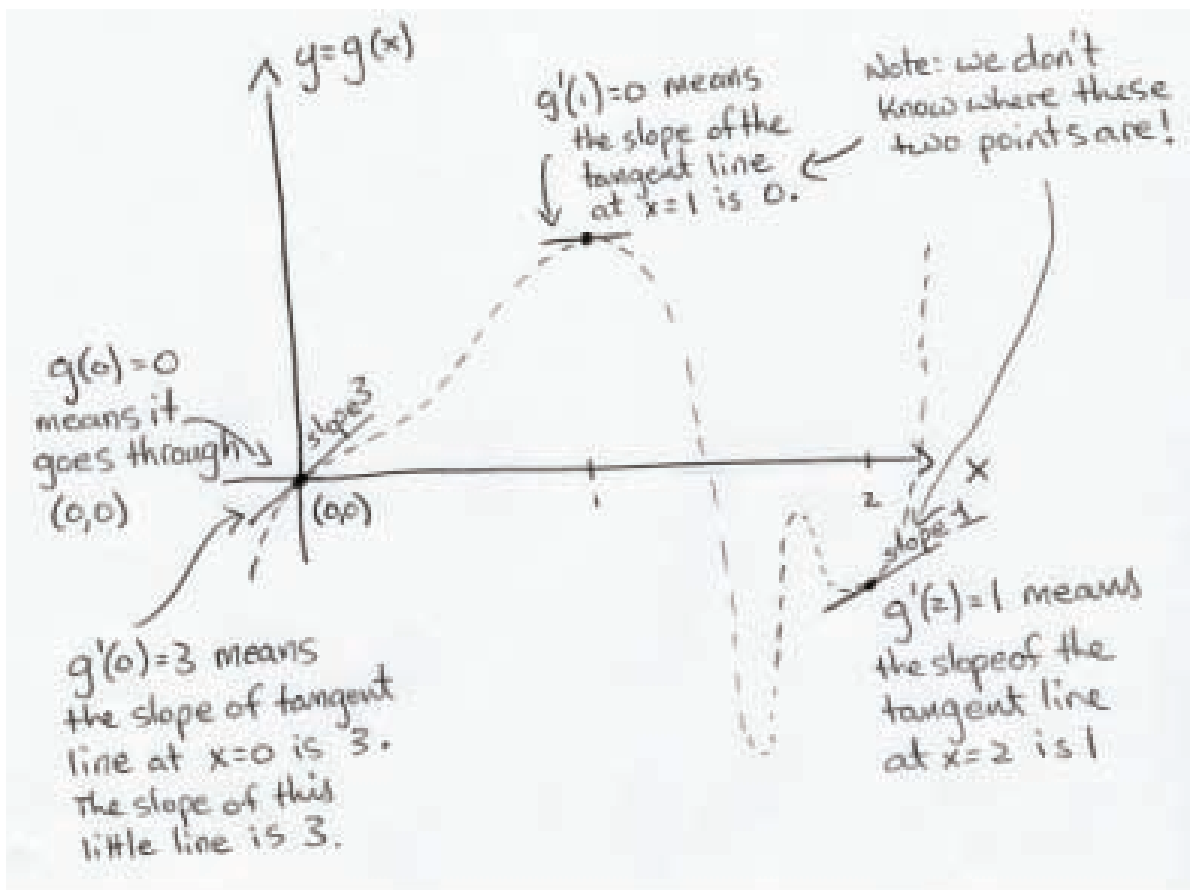 y=g(x)
g'(1)=0 means
the slope of the
tangent line
at x=1 is 0.
Note: we don't
know where these
two points are!
g(0)=0
means it
goes through
(0,0)
slope 3
(0,0)
1
2
x
slope 1
g'(0)=3 means
the slope of tangent
line at x=0 is 3.
The slope of this
little line is 3.
g'(2)=1 means
the slope of the
tangent line
at x=2 is 1